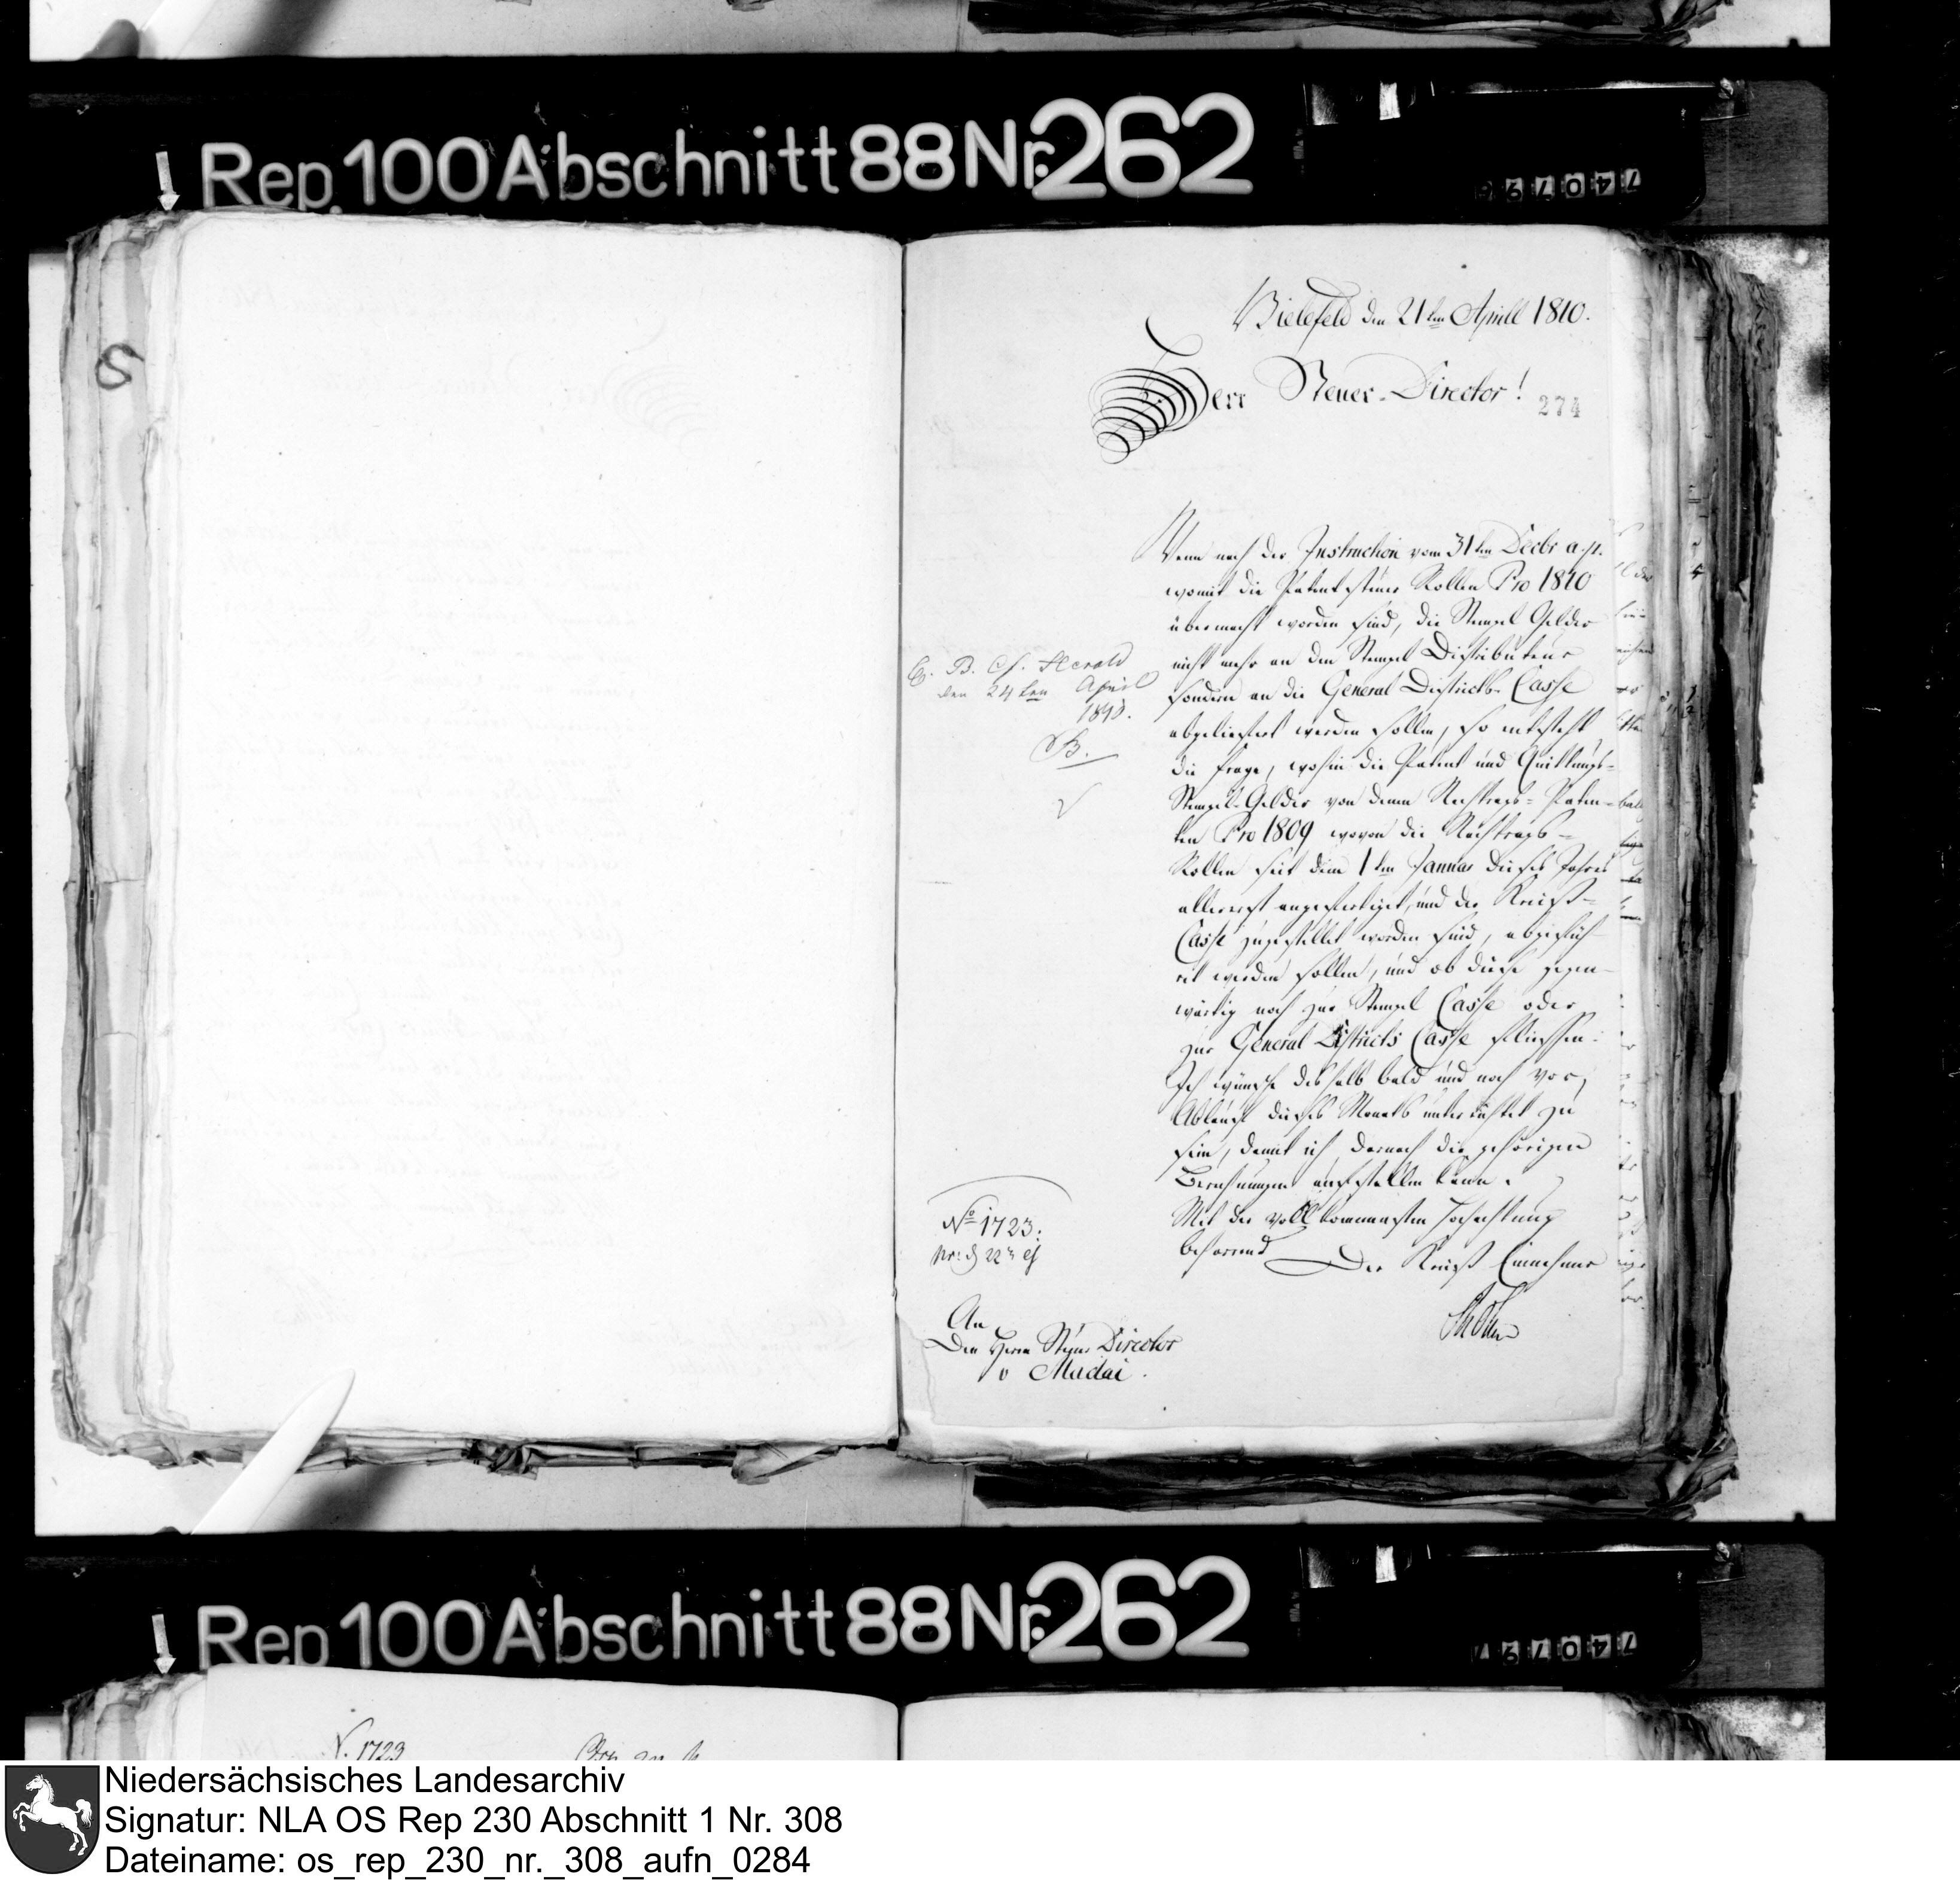 Rep. 100 Abschnitt 88 Nr. 262
740796
Bielefeld den 21ten Aprill 1810.
Herr Steuer-Director!
274
Wenn nach der Instruction vom 31ten Decbr a. p.
womit die Patentsteuer Rollen Pro 1810
übermacht worden sind, die Stempel Gelder
nicht mehr an den Stempel Distributeur
sondern an die General Districts-Casse
abgeliefert werden sollen, so entsteht
die Frage, wohin die Patent und Quittungs-
Stempel-Gelder von denen Nachtrags-Paten-
ten Pro 1809 wovon die Nachtrags-
Rollen seit dem 1ten Januar dieses Jahres
allererst angefertiget, und der Kreiß-
Casse zugestellet worden sind, abgefüh-
ret werden sollen, und ob diese gegen-
wärtig noch zur Stempel Casse oder
zur General Districts Casse fliessen.
Ich wünsche deshalb bald und noch vor
Ablauf dieses Monats unterrichtet zu
sein, damit ich darnach die gehörigen
Berechnungen aufstellen kann.
Mit der vollkommensten Hochachtung
beharrend
Der Kreiß Einnehmer
den 24ten April
1810.
B.
No 1723.
pr: d 22n ej
An
Den Herrn Steuer Director
v Madai.
Rep 100 Abschnitt 88 Nr. 262
740797
N. 1723
Niedersächsisches Landesarchiv
Signatur: NLA OS Rep 230 Abschnitt 1 Nr. 308
Dateiname: os_rep_230_nr._308_aufn_0284